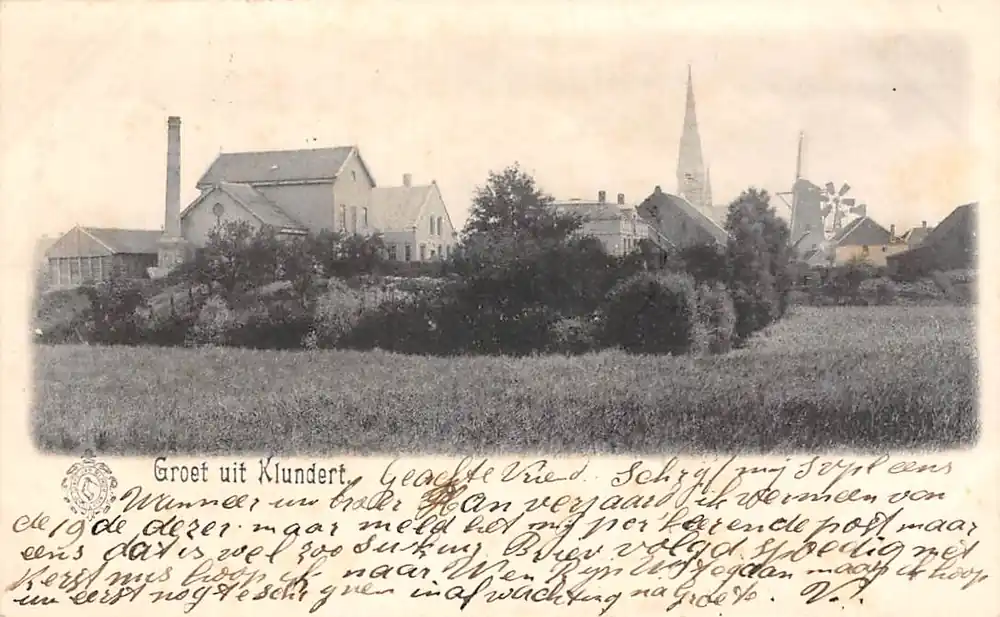 Groet uit Klundert.
Geachte Vriend. Schrijf mij svpl eens
Wanneer uw broer Han verjaard ik vermeen van
de 19de dezer. maar meld het mij per keerende post maar
eens dat is wel zoo Brief volgd spoedig met
Kerstmis hoop ik naar te gaan maar ik hoop
uw eerst nog te schrijven inafwachting na groete. V.